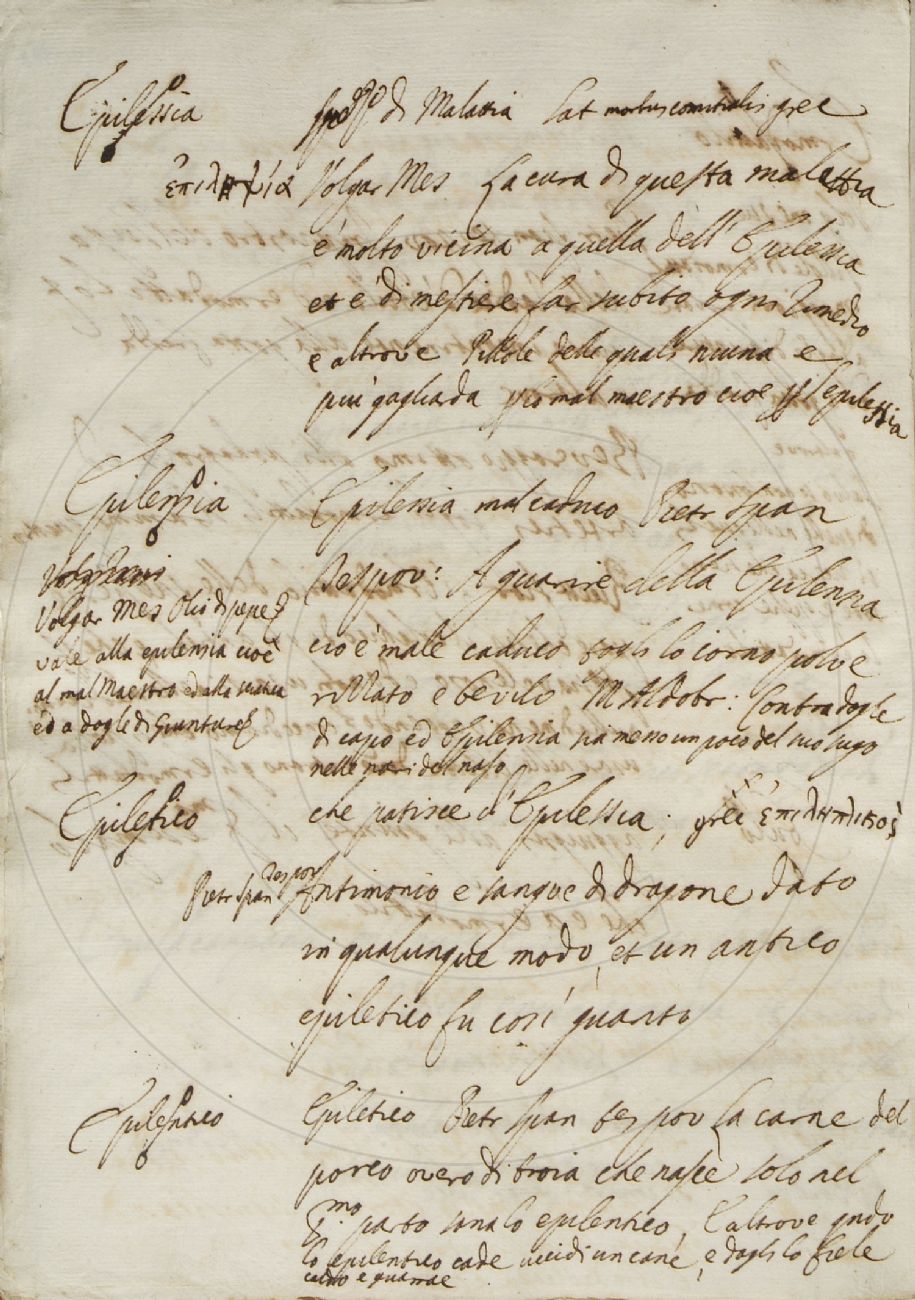 Epilessia
spezie di Malattia Lat morbus comitialis grec
ἐπιληψία Volgar Mes La cura di questa malattia
è molto vicina a quella dell' Epilensia
et è di mestiere far subito ogni rimedio
e altrove Pillole delle quali niuna e
più gagliarda mal maestro cioè l'epilessia
Epilensia
Epilensia mal caduco Pietr Span
Tes pov: A guarire della Epilensia
cio è male caduco togli lo corno polve
rizzato e bevilo M Aldobr: Contra dogle
di capo ed Epilensia sia messo un poco del suo sugo
nelle nari del naso
Volgar Mes Olio di pepe
vale alla epilensia cioè
al mal Maestro ed alla
ed a dogle di Giunture
Epiletico
che patisce d' Epilessia; grec
Pietr Span Tes pov Antimonio e sangue di dragone dato
in qualunque modo, et un antico
epiletico fu così guarito
Epilentico
Epiletico Pietr Span tes pov La carne del
porco overo di troia che nasce solo nel
pmo parto sana lo epilentico, E altrove qndo
lo epilentico cade uccidi un cane, e dagli lo fiele
caldo e guarrae